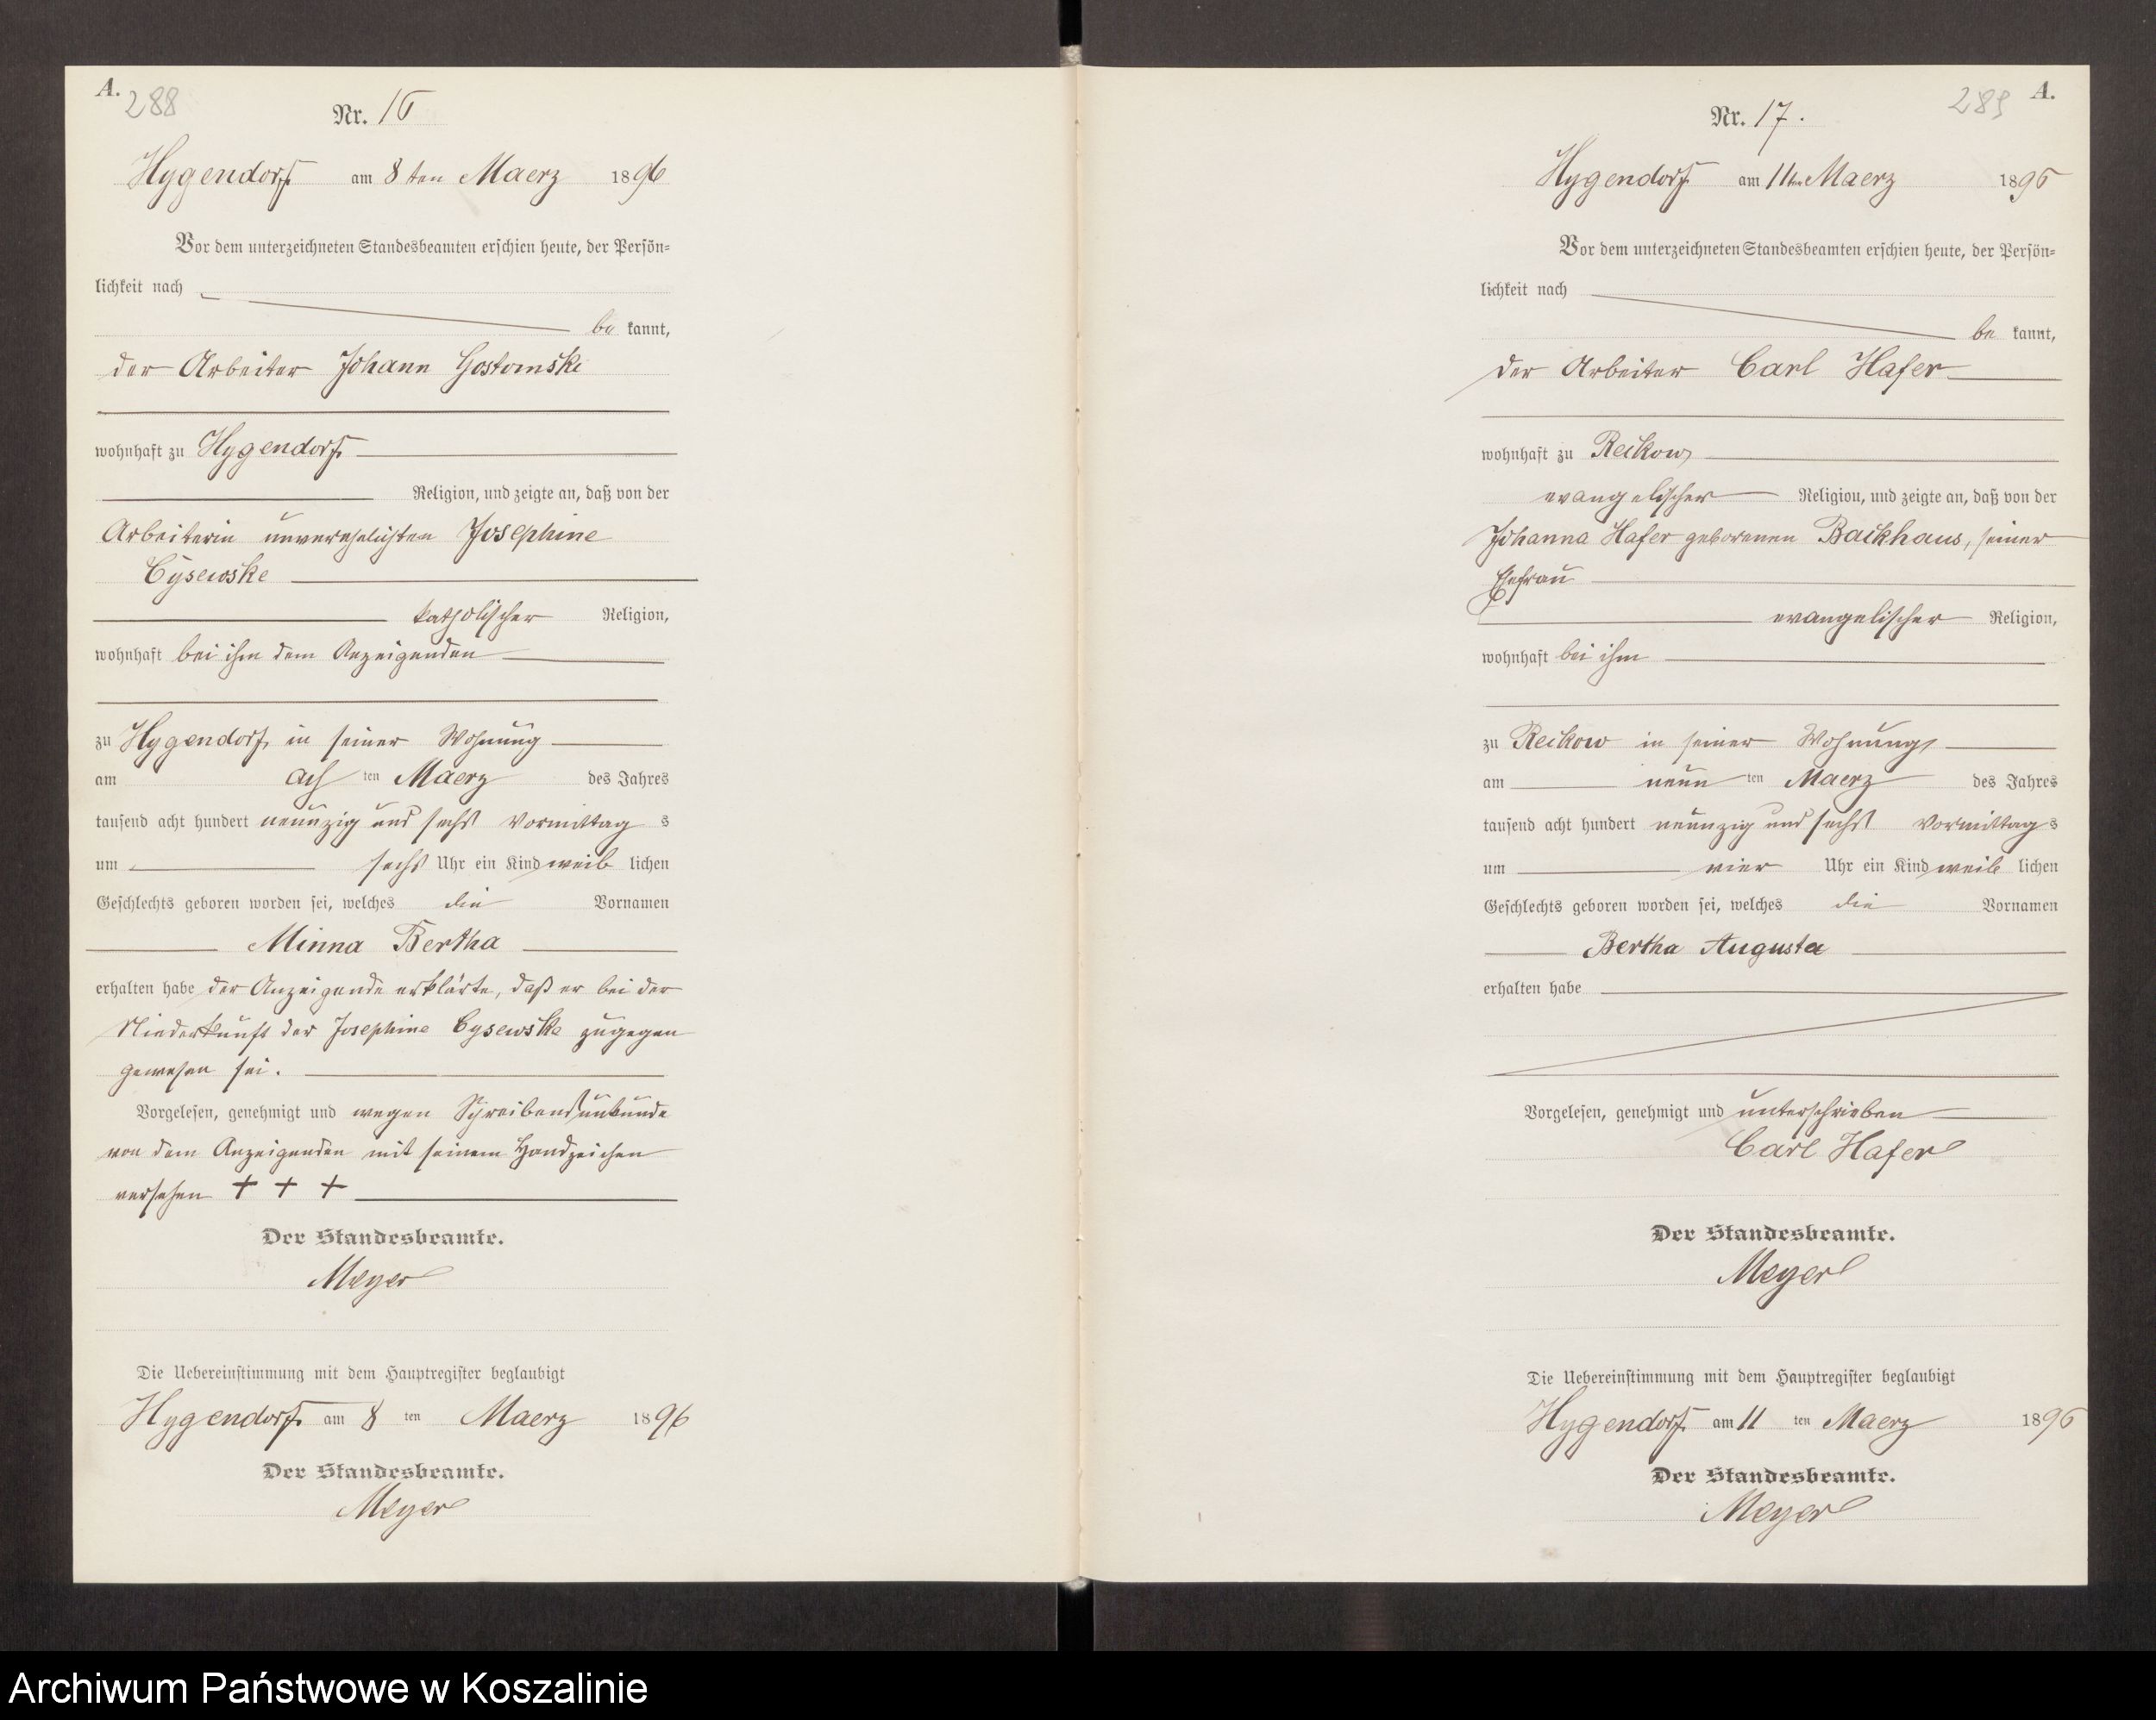 A.
288
Nr. 16
Hygendorf am 8ten Maerz 1896
Vor dem unterzeichneten Standesbeamten erschien heute, der Persön-
lichkeit nach
be kannt,
der Arbeiter Johann Gostomski
wohnhaft zu Hygendorf
Religion, und zeigte an, daß von der
Arbeiterin unverehelichten Josephine
Cysewske
katholischer Religion,
wohnhaft bei ihm dem Anzeigenden
zu Hygendorf in seiner Wohnung
am ach ten Maerz des Jahres
tausend acht hundert neunzig und sechs Vormittag s
um sechs Uhr ein Kind weib lichen
Geschlechts geboren worden sei, welches die Vornamen
Minna Bertha
erhalten habe der Anzeigende erklärte, daß er bei der
Niederkunft der Josephine Cysewske zugegen
gewesen sei.
Vorgelesen, genehmigt und wegen Schreibensunkunde
von dem Anzeigenden mit seinem Handzeichen
versehen + + +
Der Standesbeamte.
Meyer
Die Uebereinstimmung mit dem Hauptregister beglaubigt
Hygendorf am 8 ten Maerz 1896
Der Standesbeamte.
Meyer
289
A.
Nr. 17.
Hygendorf am 11ten Maerz 1896
Vor dem unterzeichneten Standesbeamten erschien heute, der Persön-
lichkeit nach
be kannt,
der Arbeiter Carl Hafer
wohnhaft zu Reckow
evangelischer Religion, und zeigte an, daß von der
Johanna Hafer geborenen Backhaus, seiner
Ehefrau
evangelischer Religion,
wohnhaft bei ihm
zu Reckow in seiner Wohnung
am neun ten Maerz des Jahres
tausend acht hundert neunzig und sechs Vormittag s
um vier Uhr ein Kind weib lichen
Geschlechts geboren worden sei, welches die Vornamen
Bertha Augusta
erhalten habe
Vorgelesen, genehmigt und unterschrieben
Carl Hafer
Der Standesbeamte.
Meyer
Die Uebereinstimmung mit dem Hauptregister beglaubigt
Hygendorf am 11 ten Maerz 1896
Der Standesbeamte.
Meyer
Archiwum Państwowe w Koszalinie